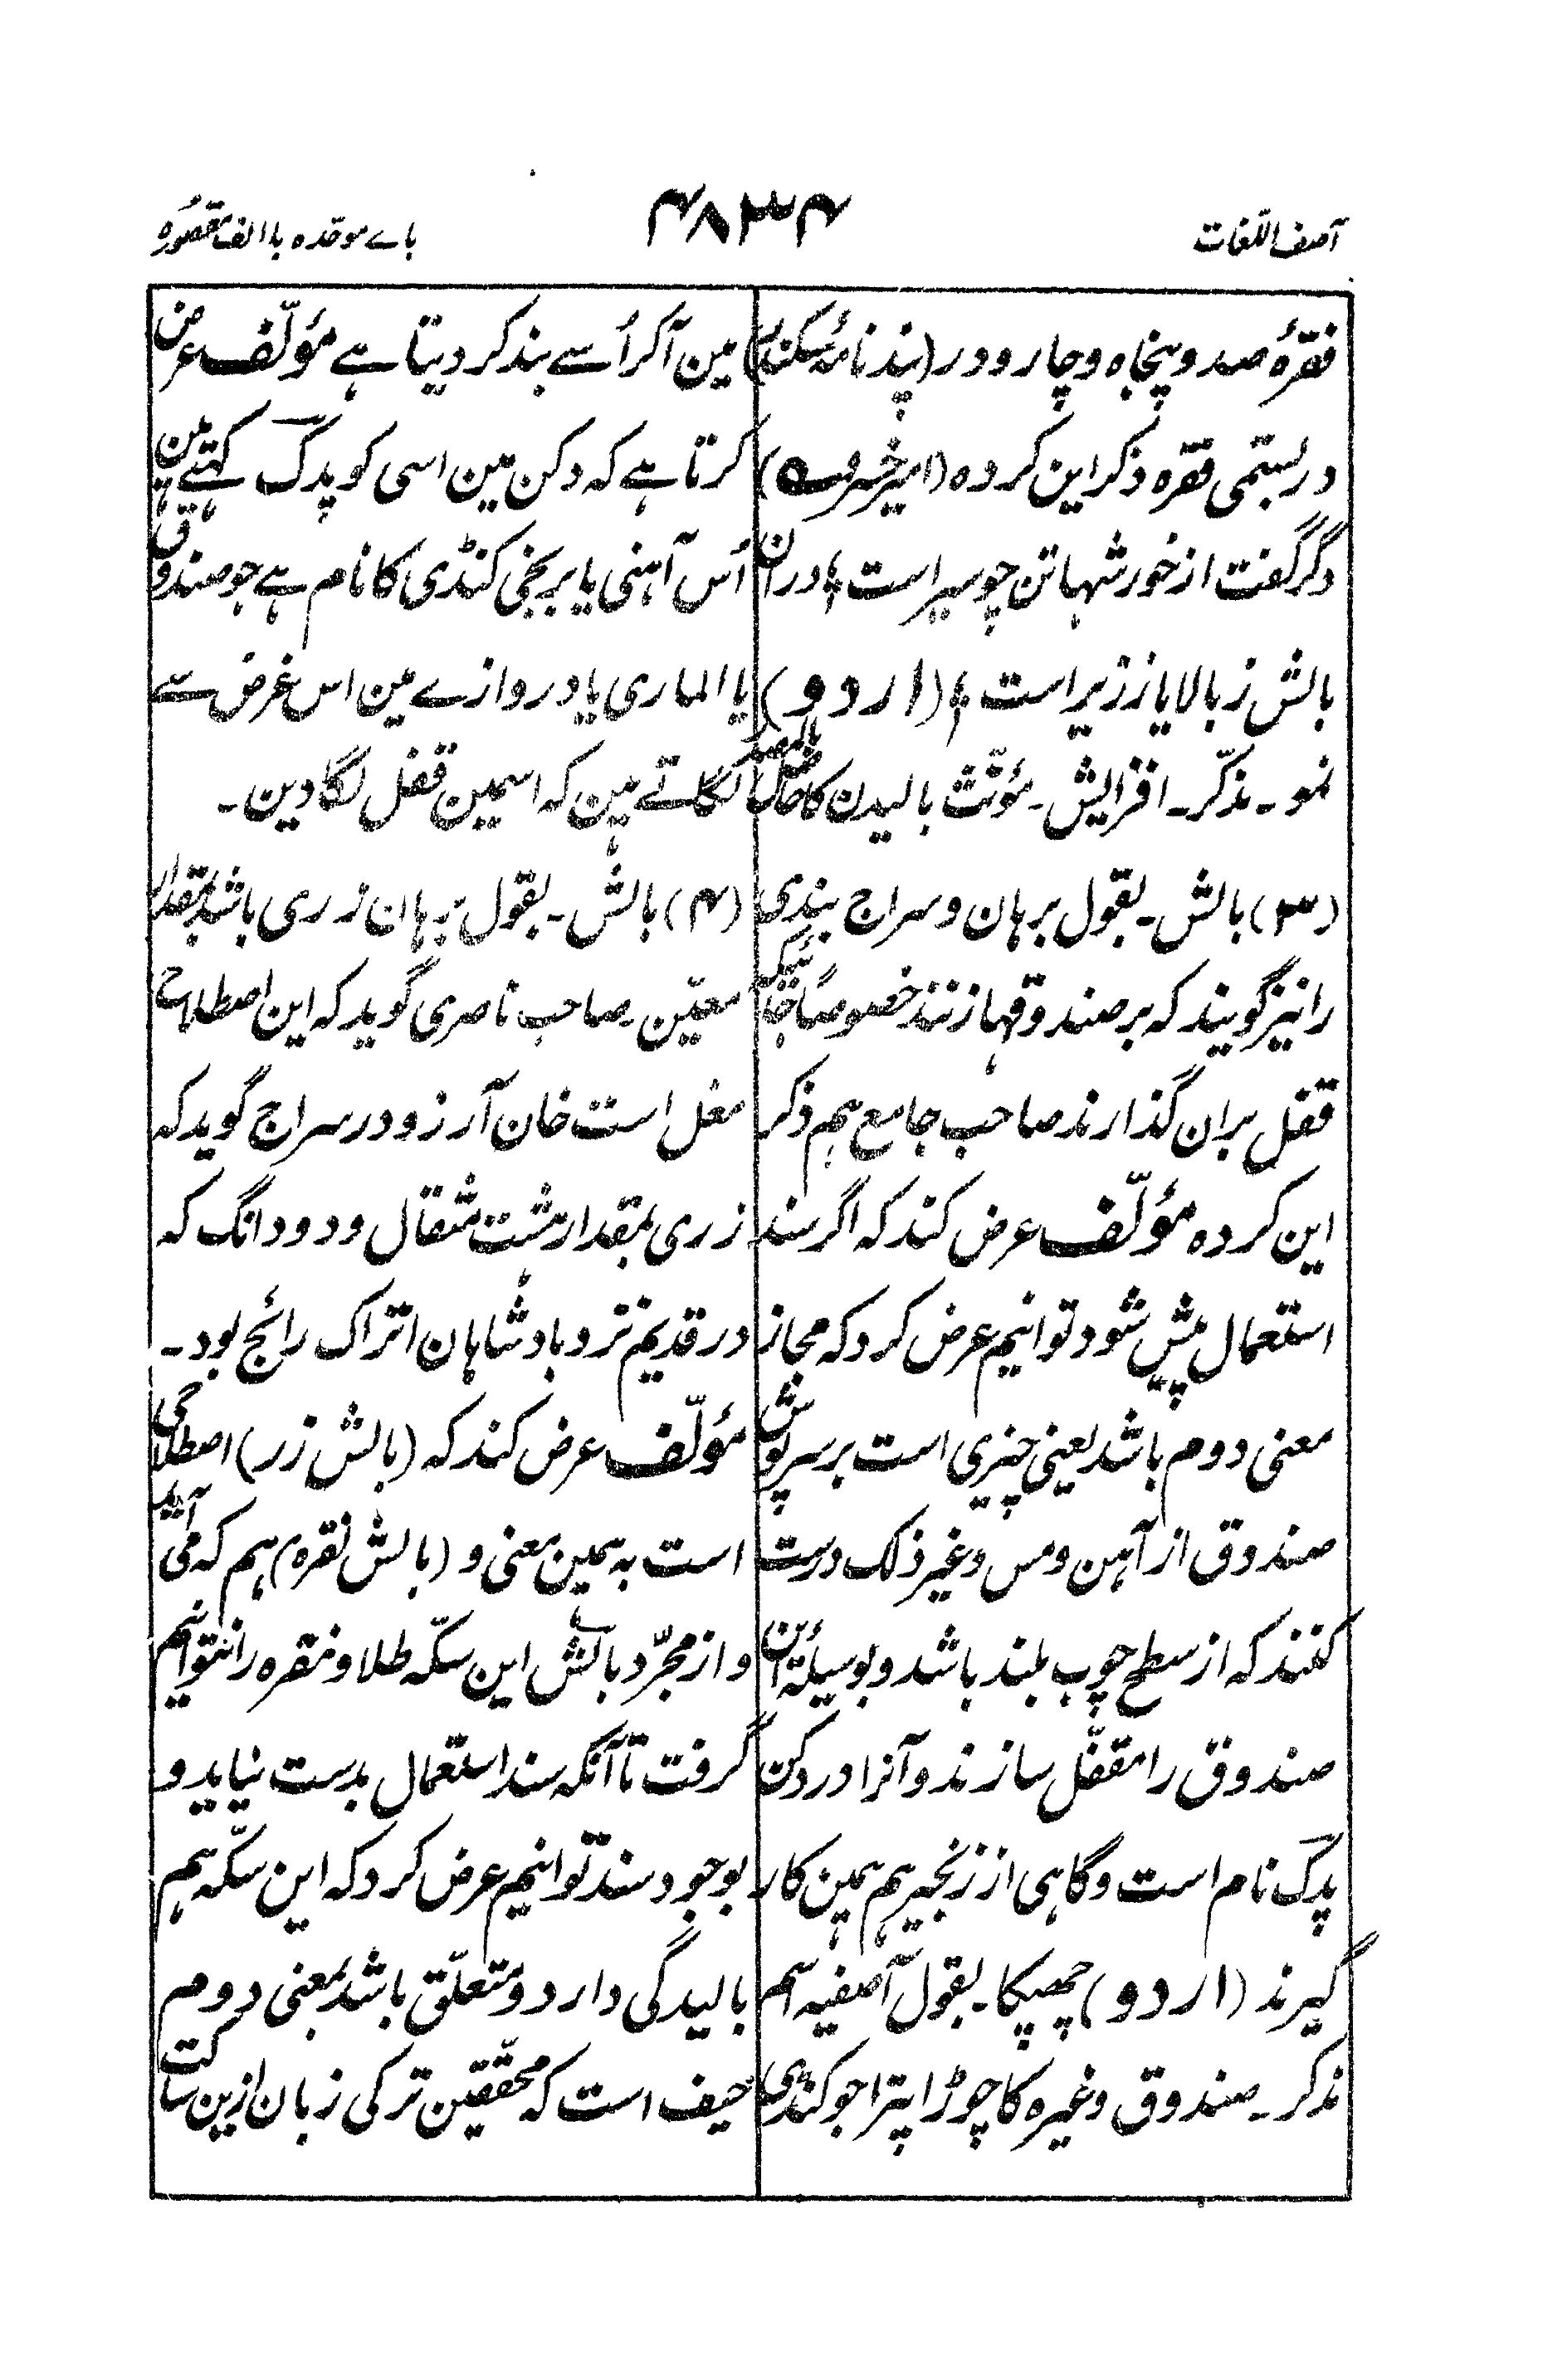 آصف اللغات
۴۸۳۴
باے موحّدہ با الف مقصورہ
فقرۂ صد و پنجاہ و چار و در (پند نامۂ سکندر)
در بستمی فقرہ ذکر این کردہ (امیر خسرو ؎)
دگر گفت از خورشہا تن چو سیر است ٪ دران
بالش ز بالا یا ز زیر است ٪ (اردو)
نمو ۔ مذکّر ۔ افزایش ۔ مؤنّث بالیدن کا حاصل بالمصدر
(۳) بالش ۔ بقول برہان و سراج بندی
را نیز گویند کہ بر صندوقہا زنند خصوصًا جائیکہ
قفل بران گذارند صاحب جامع ہم ذکر
این کردہ مؤلّف عرض کند کہ اگر سند
استعمال پیش شود توانیم عرض کرد کہ مجاز
معنی دوم باشد یعنی چیزی است بر سرپوش
صندوق از آہن و مس و غیر ذلک درست
کنند کہ از سطح چوب بلند باشد و بوسیلۂ این
صندوق را مقفّل سازند و آنرا در دکن
پدک نام است و گاہی از زنجیر ہم ہمین کار
گیرند (اردو) چھپکا ۔ بقول آصفیہ اسم
مذکر ۔ صندوق وغیرہ کا چوڑا پترا جو کنڈی
مین آکر اُسے بند کر دیتا ہے مؤلّف عرض
کرتا ہے کہ دکن مین اسی کو پدک کہتے ہین
اُس آہنی یا برنجی کنڈی کا نام ہے جو صندوق
یا الماری یا دروازے مین اس غرض سے
لگاتے ہین کہ اسمین قفل لگا دین ۔
(۴) بالش ۔ بقول برہان زری باشد بمقدار
معیّن صاحب ناصری گوید کہ این اصطلاح
مغل است خان آرزو در سراج گوید کہ
زری بمقدار ہشت مثقال و دو دانگ کہ
در قدیم نزد بادشاہان اتراک رائج بود ۔
مؤلّف عرض کند کہ (بالش زر) اصطلاحی
است بہ ہمین معنی و (بالش نقرہ) ہم کہ می آید
و از مجرّد بالش این سکّہ طلا و نقرہ را نتوانیم
گرفت تا آنکہ سند استعمال بدست نیاید و
بوجود سند توانیم عرض کرد کہ این سکّہ ہم
بالیدگی دارد و متعلّق باشد بمعنی دوم
حیف است کہ محقّقین ترکی زبان ازین ساکت